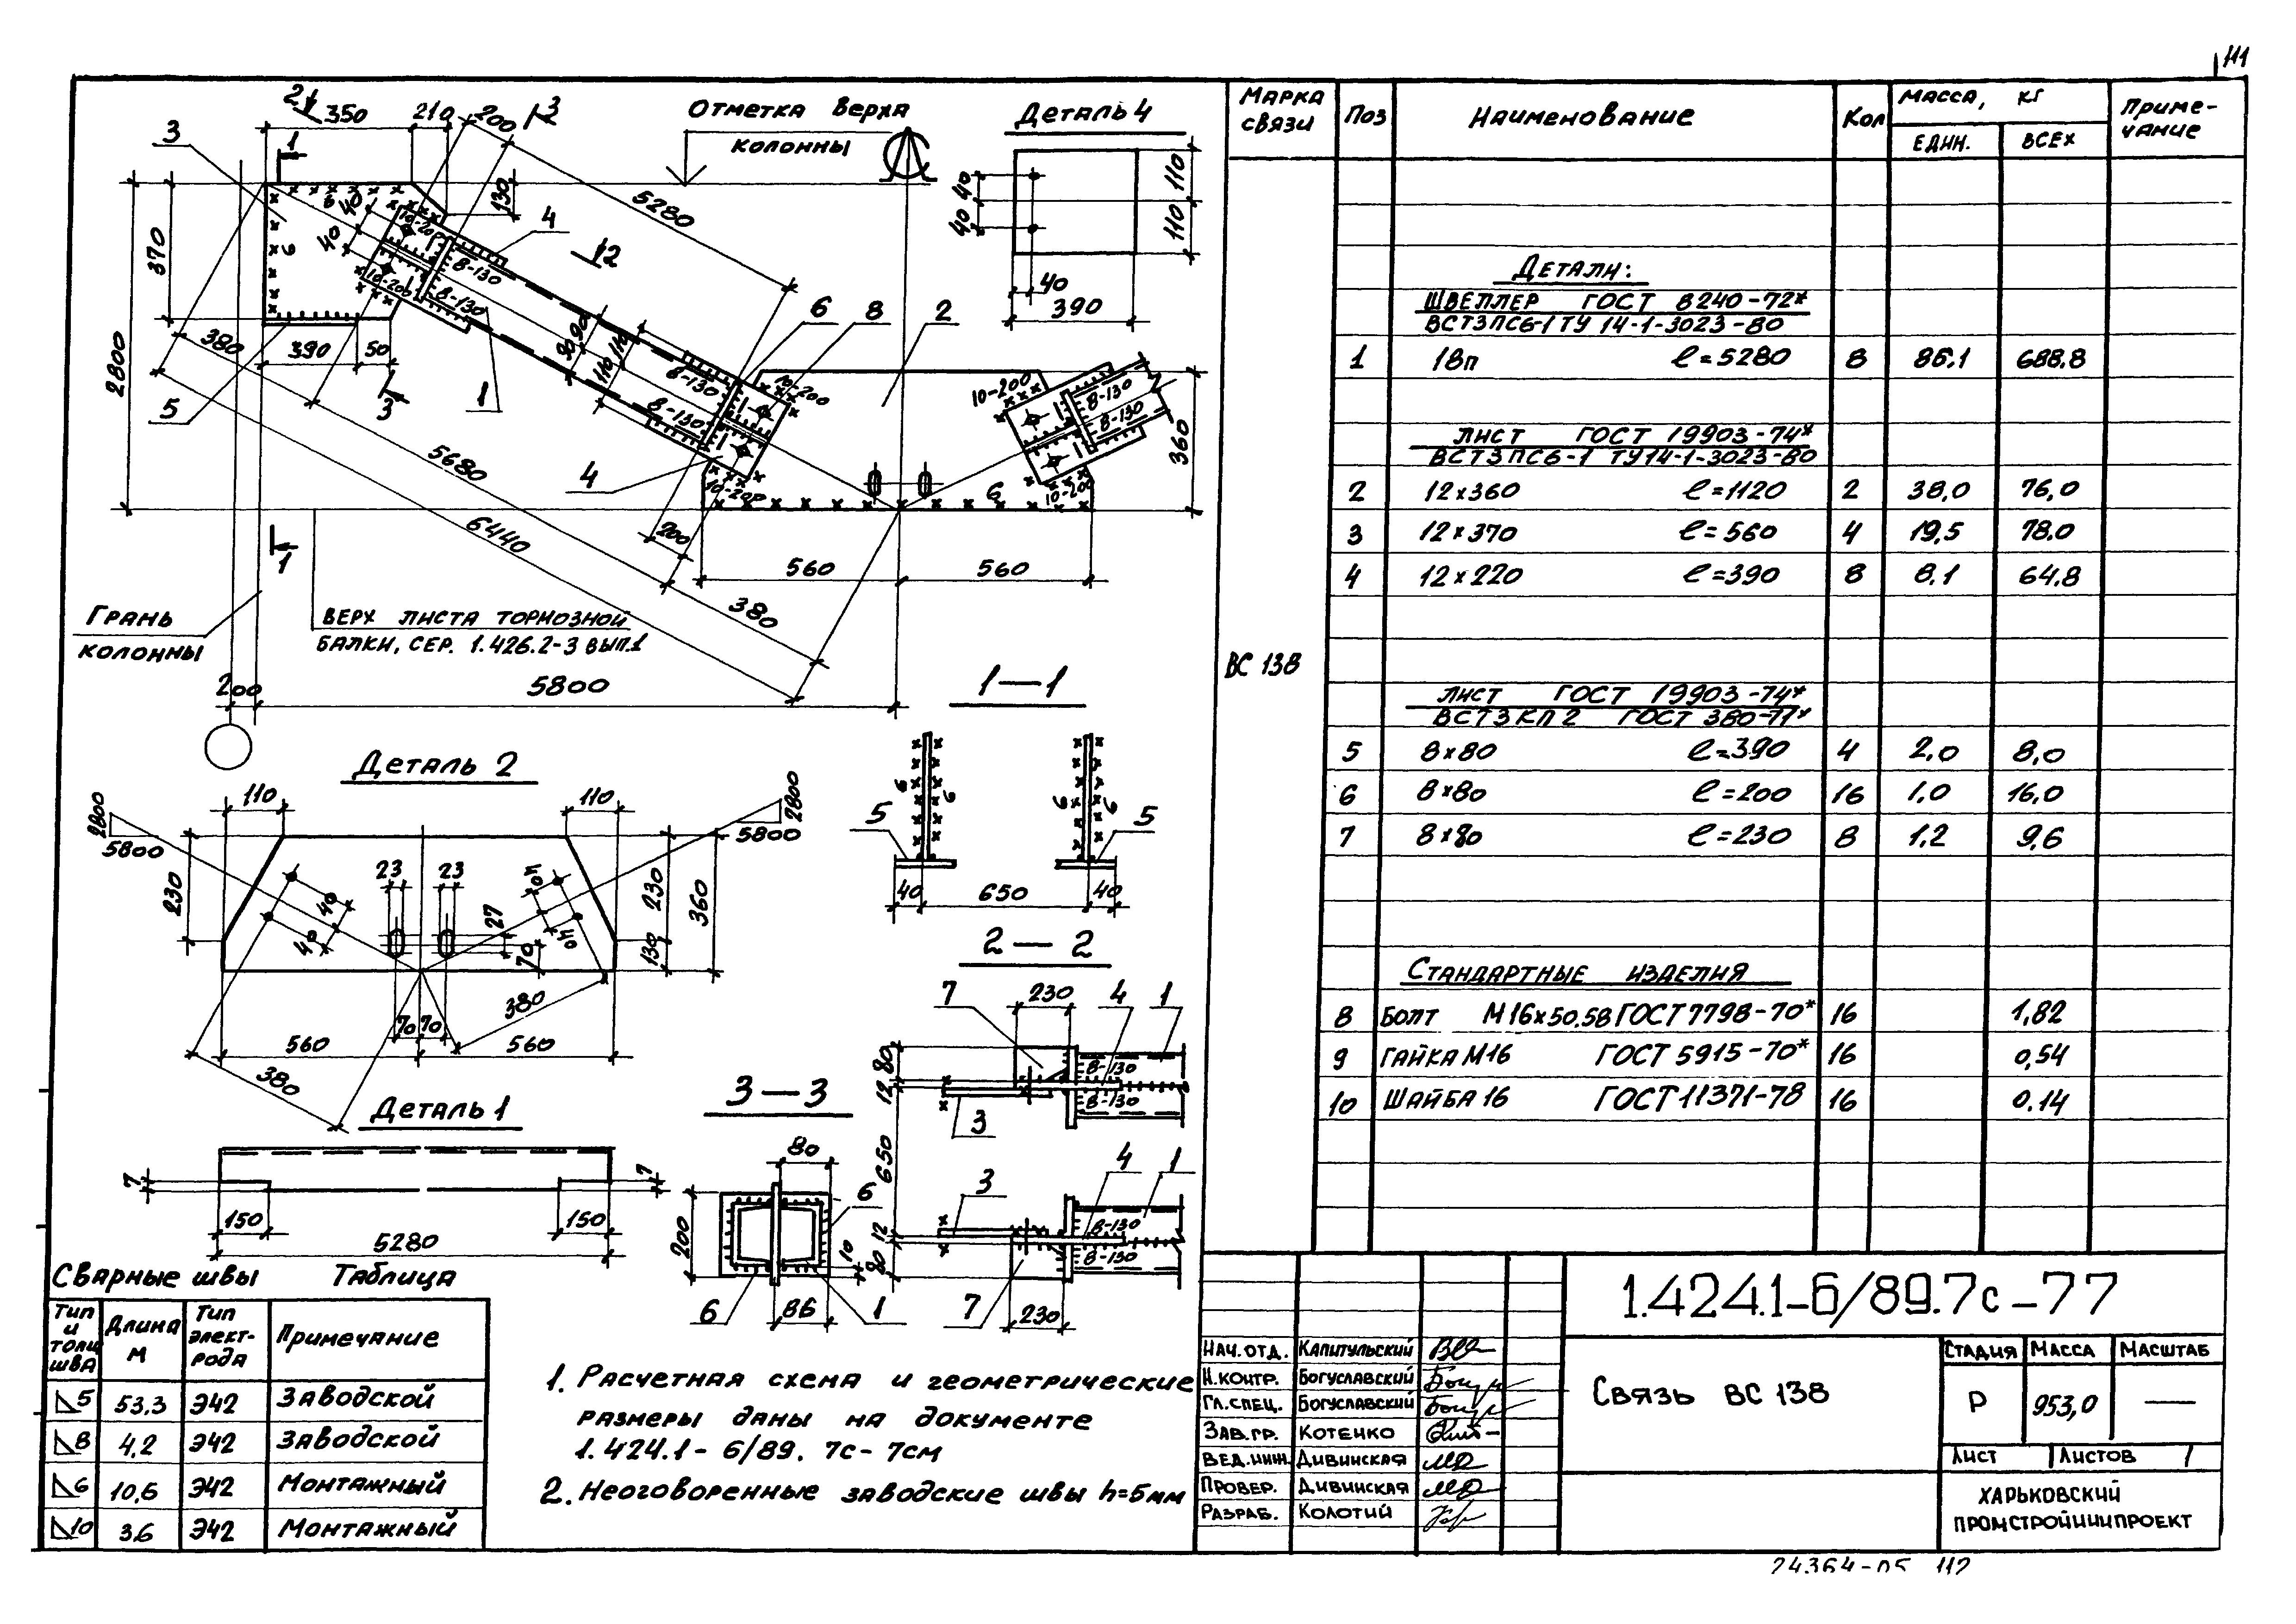 111
2
350
210
200
3
3
1
370
2800
6
40
40
10-200
10-200
8-130
8-130
130
4
5280
2
Отметка верха
колонны
380
390
50
5
3
1
90
90
110
110
6
8
2
8-130
8-130
10-200
10-200
4
10-200
10-200
8-130
8-130
6
360
5680
6440
200
560
560
380
1
Грань
колонны
Верх листа тормозной
балки, сер. 1.426.2-3 вып.1
200
5800
Деталь 4
40
40
110
110
40
390
Деталь 2
110
110
2800
5800
2800
5800
230
23
23
40
40
40
40
27
70
230
130
360
380
70
70
560
560
380
Деталь 1
7
7
150
150
5280
1—1
6
6
6
6
5
5
40
650
40
2—2
7
230
4
1
80
12
8-130
8-130
3
650
3
4
1
12
80
8-130
8-130
7
230
3—3
80
200
6
10
6
86
1
Сварные швы Таблица
Тип и толщ шва
Длина м
Тип электрода
Примечание
5 53.3 Э42 Заводской
8 4,2 Э42 Заводской
6 10,6 Э42 Монтажный
10 3.6 Э42 Монтажный
1. Расчетная схема и геометрические
размеры даны на документе
1.424.1-6/89.7с-7см
2. Неоговоренные заводские швы h=5мм
Марка связи
Поз
Наименование
Кол
Масса, кг
един.
всех
Примечание
ВС 138
Детали:
Швеллер ГОСТ 8240-72*
ВСт3пс6-1 ТУ 14-1-3023-80
1 18п ℓ=5280 8 86.1 688.8
Лист ГОСТ 19903-74*
ВСт3пс6-1 ТУ14-1-3023-80
2 12×360 ℓ=1120 2 38,0 76,0
3 12×370 ℓ=560 4 19,5 78.0
4 12×220 ℓ=390 8 8.1 64.8
Лист ГОСТ 19903-74*
ВСт3кп2 ГОСТ 380-71*
5 8×80 ℓ=390 4 2,0 8,0
6 8×80 ℓ=200 16 1,0 16,0
7 8×80 ℓ=230 8 1,2 9,6
Стандартные изделия
8 Болт М16×50.58 ГОСТ 7798-70* 16 1,82
9 Гайка М16 ГОСТ 5915-70* 16 0,54
10 Шайба 16 ГОСТ 11371-78 16 0.14
1.424.1-6/89.7с-77
Нач.отд. Капитульский
Н.контр. Богуславский
Гл.спец. Богуславский
Зав.гр. Котенко
Вед.инж. Дивинская
Провер. Дивинская
Разраб. Колотий
Связь ВС 138
Стадия Масса Масштаб
Р 953,0 —
Лист Листов 1
Харьковский
ПромстройНИИпроект
24364-05 112